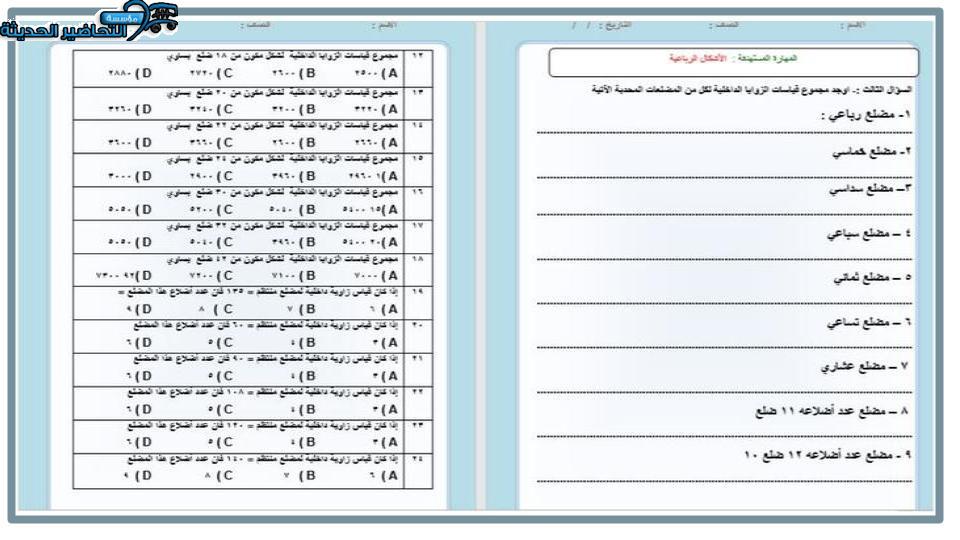 مؤسسة
التحاضير الحديثة
الاسم : الصف : التاريخ : / /
المهارة المستهدفة : الأشكال الرباعية
السؤال الثالث :ـ اوجد مجموع قياسات الزوايا الداخلية لكل من المضلعات المحدبة الآتية
١- مضلع رباعي :
٢- مضلع خماسي
٣– مضلع سداسي
٤ – مضلع سباعي
٥ – مضلع ثماني
٦ – مضلع تساعي
٧ – مضلع عشاري
٨ – مضلع عدد أضلاعه ١١ ضلع
٩ - مضلع عدد أضلاعه ١٢ ضلع ١٠
الاسم : الصف :
١٢ مجموع قياسات الزوايا الداخلية لشكل مكون من ١٨ ضلع يساوي
A) ٢٥٠٠ B) ٢٦٠٠ C) ٢٧٢٠ D) ٢٨٨٠
١٣ مجموع قياسات الزوايا الداخلية لشكل مكون من ٢٠ ضلع يساوي
A) ٣٢٢٠ B) ٣٢٠٠ C) ٣٢٤٠ D) ٣٢٦٠
١٤ مجموع قياسات الزوايا الداخلية لشكل مكون من ٢٢ ضلع يساوي
A) ٢٦٦٠ B) ٢٦٠٠ C) ٣٦٦٠ D) ٣٦٠٠
١٥ مجموع قياسات الزوايا الداخلية لشكل مكون من ٢٤ ضلع يساوي
B) ٣٩٦٠ C) ٢٩٠٠ D) ٣٠٠٠
١٦ مجموع قياسات الزوايا الداخلية لشكل مكون من ٣٠ ضلع يساوي
A) ١٥ ٥٤٠٠ B) ٥٠٤٠ C) ٥٢٠٠ D) ٥٠٥٠
١٧ مجموع قياسات الزوايا الداخلية لشكل مكون من ٣٢ ضلع يساوي
A) ٢٠ ٥٤٠٠ B) ٣٩٦٠ C) ٥٠٤٠ D) ٥٠٥٠
١٨ مجموع قياسات الزوايا الداخلية لشكل مكون من ٤٢ ضلع يساوي
A) ٧٠٠٠ B) ٧١٠٠ C) ٧٢٠٠ D) ٩٢ ٧٣٠٠
١٩ إذا كان قياس زاوية داخلية لمضلع منتظم = ١٣٥ فان عدد أضلاع هذا المضلع =
A) ٦ B) ٧ C) ٨ D) ٩
٢٠ إذا كان قياس زاوية داخلية لمضلع منتظم = ٦٠ فان عدد أضلاع هذا المضلع
A) ٣ B) ٤ C) ٥ D) ٦
٢١ إذا كان قياس زاوية داخلية لمضلع منتظم = ٩٠ فان عدد أضلاع هذا المضلع
A) ٣ B) ٤ C) ٥ D) ٦
٢٢ إذا كان قياس زاوية داخلية لمضلع منتظم = ١٠٨ فان عدد أضلاع هذا المضلع
A) ٣ B) ٤ C) ٥ D) ٦
٢٣ إذا كان قياس زاوية داخلية لمضلع منتظم = ١٢٠ فان عدد أضلاع هذا المضلع
A) ٣ B) ٤ C) ٥ D) ٦
٢٤ إذا كان قياس زاوية داخلية لمضلع منتظم = ١٤٠ فان عدد أضلاع هذا المضلع
A) ٦ B) ٧ C) ٨ D) ٩